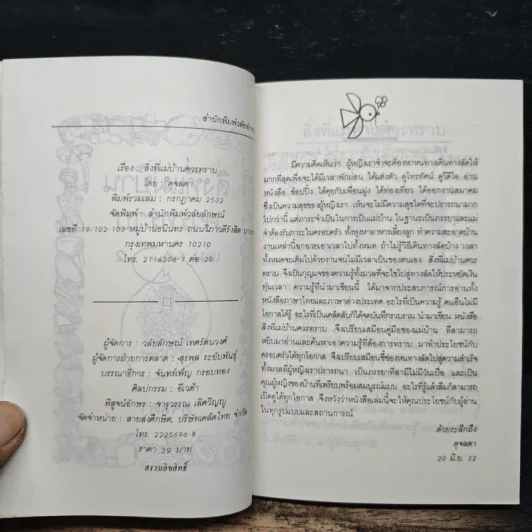 สำนักพิมพ์วลัยลักษณ์
เรื่อง : สิ่งที่แม่บ้านควรทราบ
โดย : ดุจลดา
พิมพ์รวมเล่ม : กรกฎาคม 2532
จัดพิมพ์ : สำนักพิมพ์วลัยลักษณ์
เลขที่ 19/102-103 หมู่บ้านชินินทร ถนนวิภาวดีรังสิต บางเขน
กรุงเทพมหานคร 10210
โทร. 2716206-7 ต่อ 29
ผู้จัดการ : วลัยลักษณ์ เทศรัตนวงศ์
ผู้จัดการฝ่ายการตลาด : สุรพล ระยับพันธุ์
บรรณาธิการ : จันทร์เพ็ญ กรอบทอง
ศิลปกรรม : อีเวต้า
พิสูจน์อักษร : จารุวรรณ เลิศวิญญู
จัดจำหน่าย : สายส่งศึกษิต บริษัทเคล็ดไทย จำกัด
โทร. 2225698-8
ราคา 39 บาท
สงวนลิขสิทธิ์
สิ่งที่แม่บ้านควรทราบ
มีความคิดเห็นว่า ผู้หญิงเราจำจะต้องหาหนทางเดินทางลัดให้
มากที่สุดเพื่อจะได้มีเวลาพักผ่อน ได้แต่งตัว ดูโทรทัศน์ ดูวีดีโอ อ่านหนัง
สือ ช้อปปิ้ง ได้คุยกับเพื่อนฝูง ได้ท่องเที่ยว ได้ออกงานสมาคม
ซึ่งเป็นความสุขของผู้หญิงเรา เห็นจะไม่มีความสุขใดที่จะปรารถนามาก
ไปกว่านี้ แต่ภาระจำเป็นในการเป็นแม่บ้าน ในฐานะเป็นภรรยาและแม่
จำต้องรับภาระในครอบครัว ทั้งหุงหาอาหารเลี้ยงลูก ทำความสะอาดบ้าน
งานเหล่านี้กอบโกยเอาเวลาไปทั้งหมด ถ้าไม่รู้วิธีเดินทางลัดบ้าง เวลา
ทั้งหมดจะเต็มไปด้วยงานจนไม่มีเวลาเป็นของตนเอง สิ่งที่แม่บ้านควร
ทราบ จึงเป็นกุญแจของความรู้ทั้งมวลที่จะไขไปสู่ทางลัดให้ประหยัดเงิน
ทุ่นเวลา ความรู้ที่นำมาเขียนนี้ ได้มาจากประสบการณ์การอ่านทั้ง
หนังสือภาษาไทยและภาษาต่างประเทศ อะไรที่เป็นความรู้ คนอื่นไม่มี
โอกาสได้รู้ อะไรที่เป็นเคล็ดลับก็ได้จดบันทึกรวบรวม นำมาเขียน หนังสือ
สิ่งที่แม่บ้านควรทราบ จึงเปรียบเสมือนคู่มือของแม่บ้าน ที่สามารถ
หยิบมาอ่านและค้นหาเอาความรู้ที่ต้องการทราบ มาทำประโยชน์กับ
ครอบครัวได้ทุกโอกาส จึงเปรียบเสมือนชี้ช่องหนทางลัดไปสู่ความสำเร็จ
ทั้งมวลที่ผู้หญิงเราปรารถนา เป็นภรรยาที่สามีไม่มีวันเบื่อ และเป็น
คุณผู้หญิงของบ้านที่เพรียบพร้อมสมบูรณ์แบบ อะไรที่รู้แล้วลืมก็สามารถ
เปิดดูได้ทุกโอกาส จึงหวังว่าหนังสือเล่มนี้จะให้คุณประโยชน์กับผู้อ่าน
ในทุกรูปแบบและสถานการณ์
ด้วยระลึกถึง
ดุจลดา
20 มิ.ย. 32